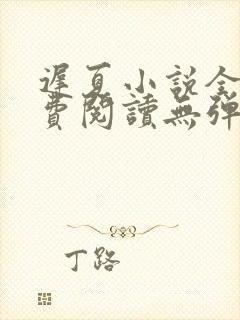 遲夏小說全
費閱讀無彈
丁路